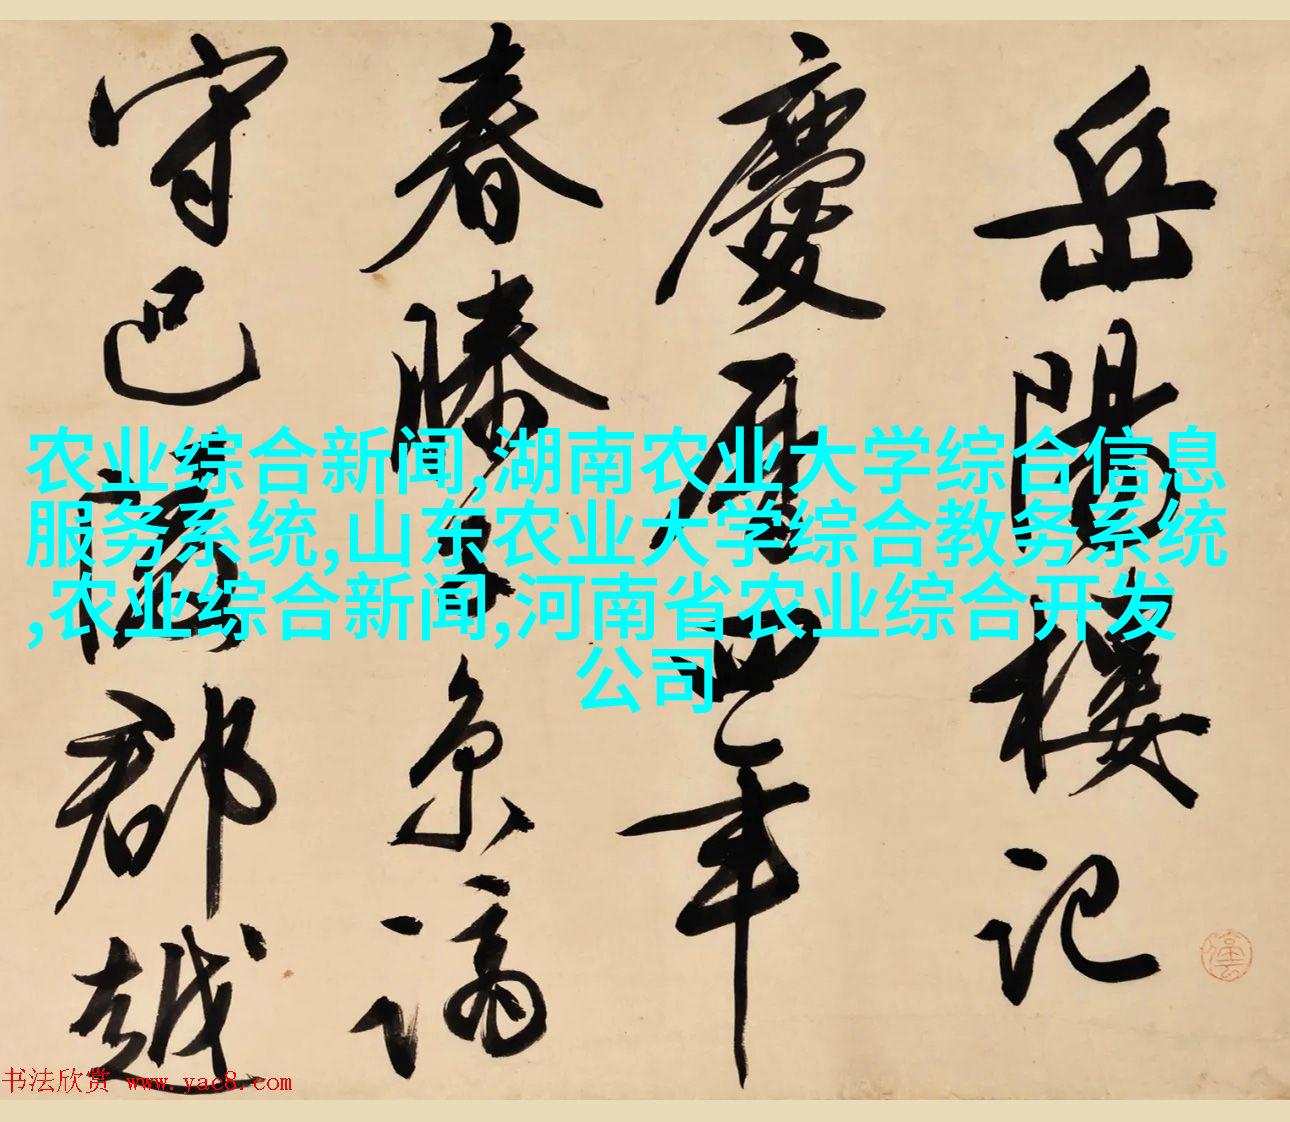 岳陽樓記
慶曆四年
春滕子京謫
守巴陵郡越
农业综合新闻,湖南农业大学综合信息
服务系统,山东农业大学综合教务系统
,农业综合新闻,河南省农业综合开发
公司
书法欣赏 www.yac8.com